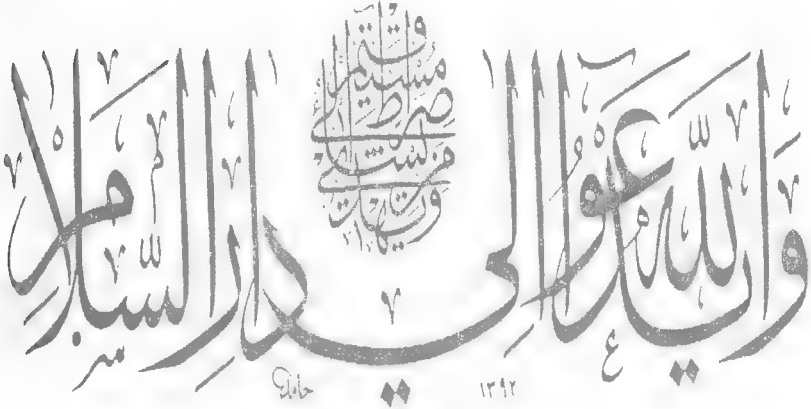 وَاللّٰهُ يَدْعُوا اِلٰى دَارِ السَّلَامِ
وَيَهْدِي مَنْ يَشَاءُ اِلٰى صِرَاطٍ مُسْتَقِيمٍ
حامد ١٣٩٢